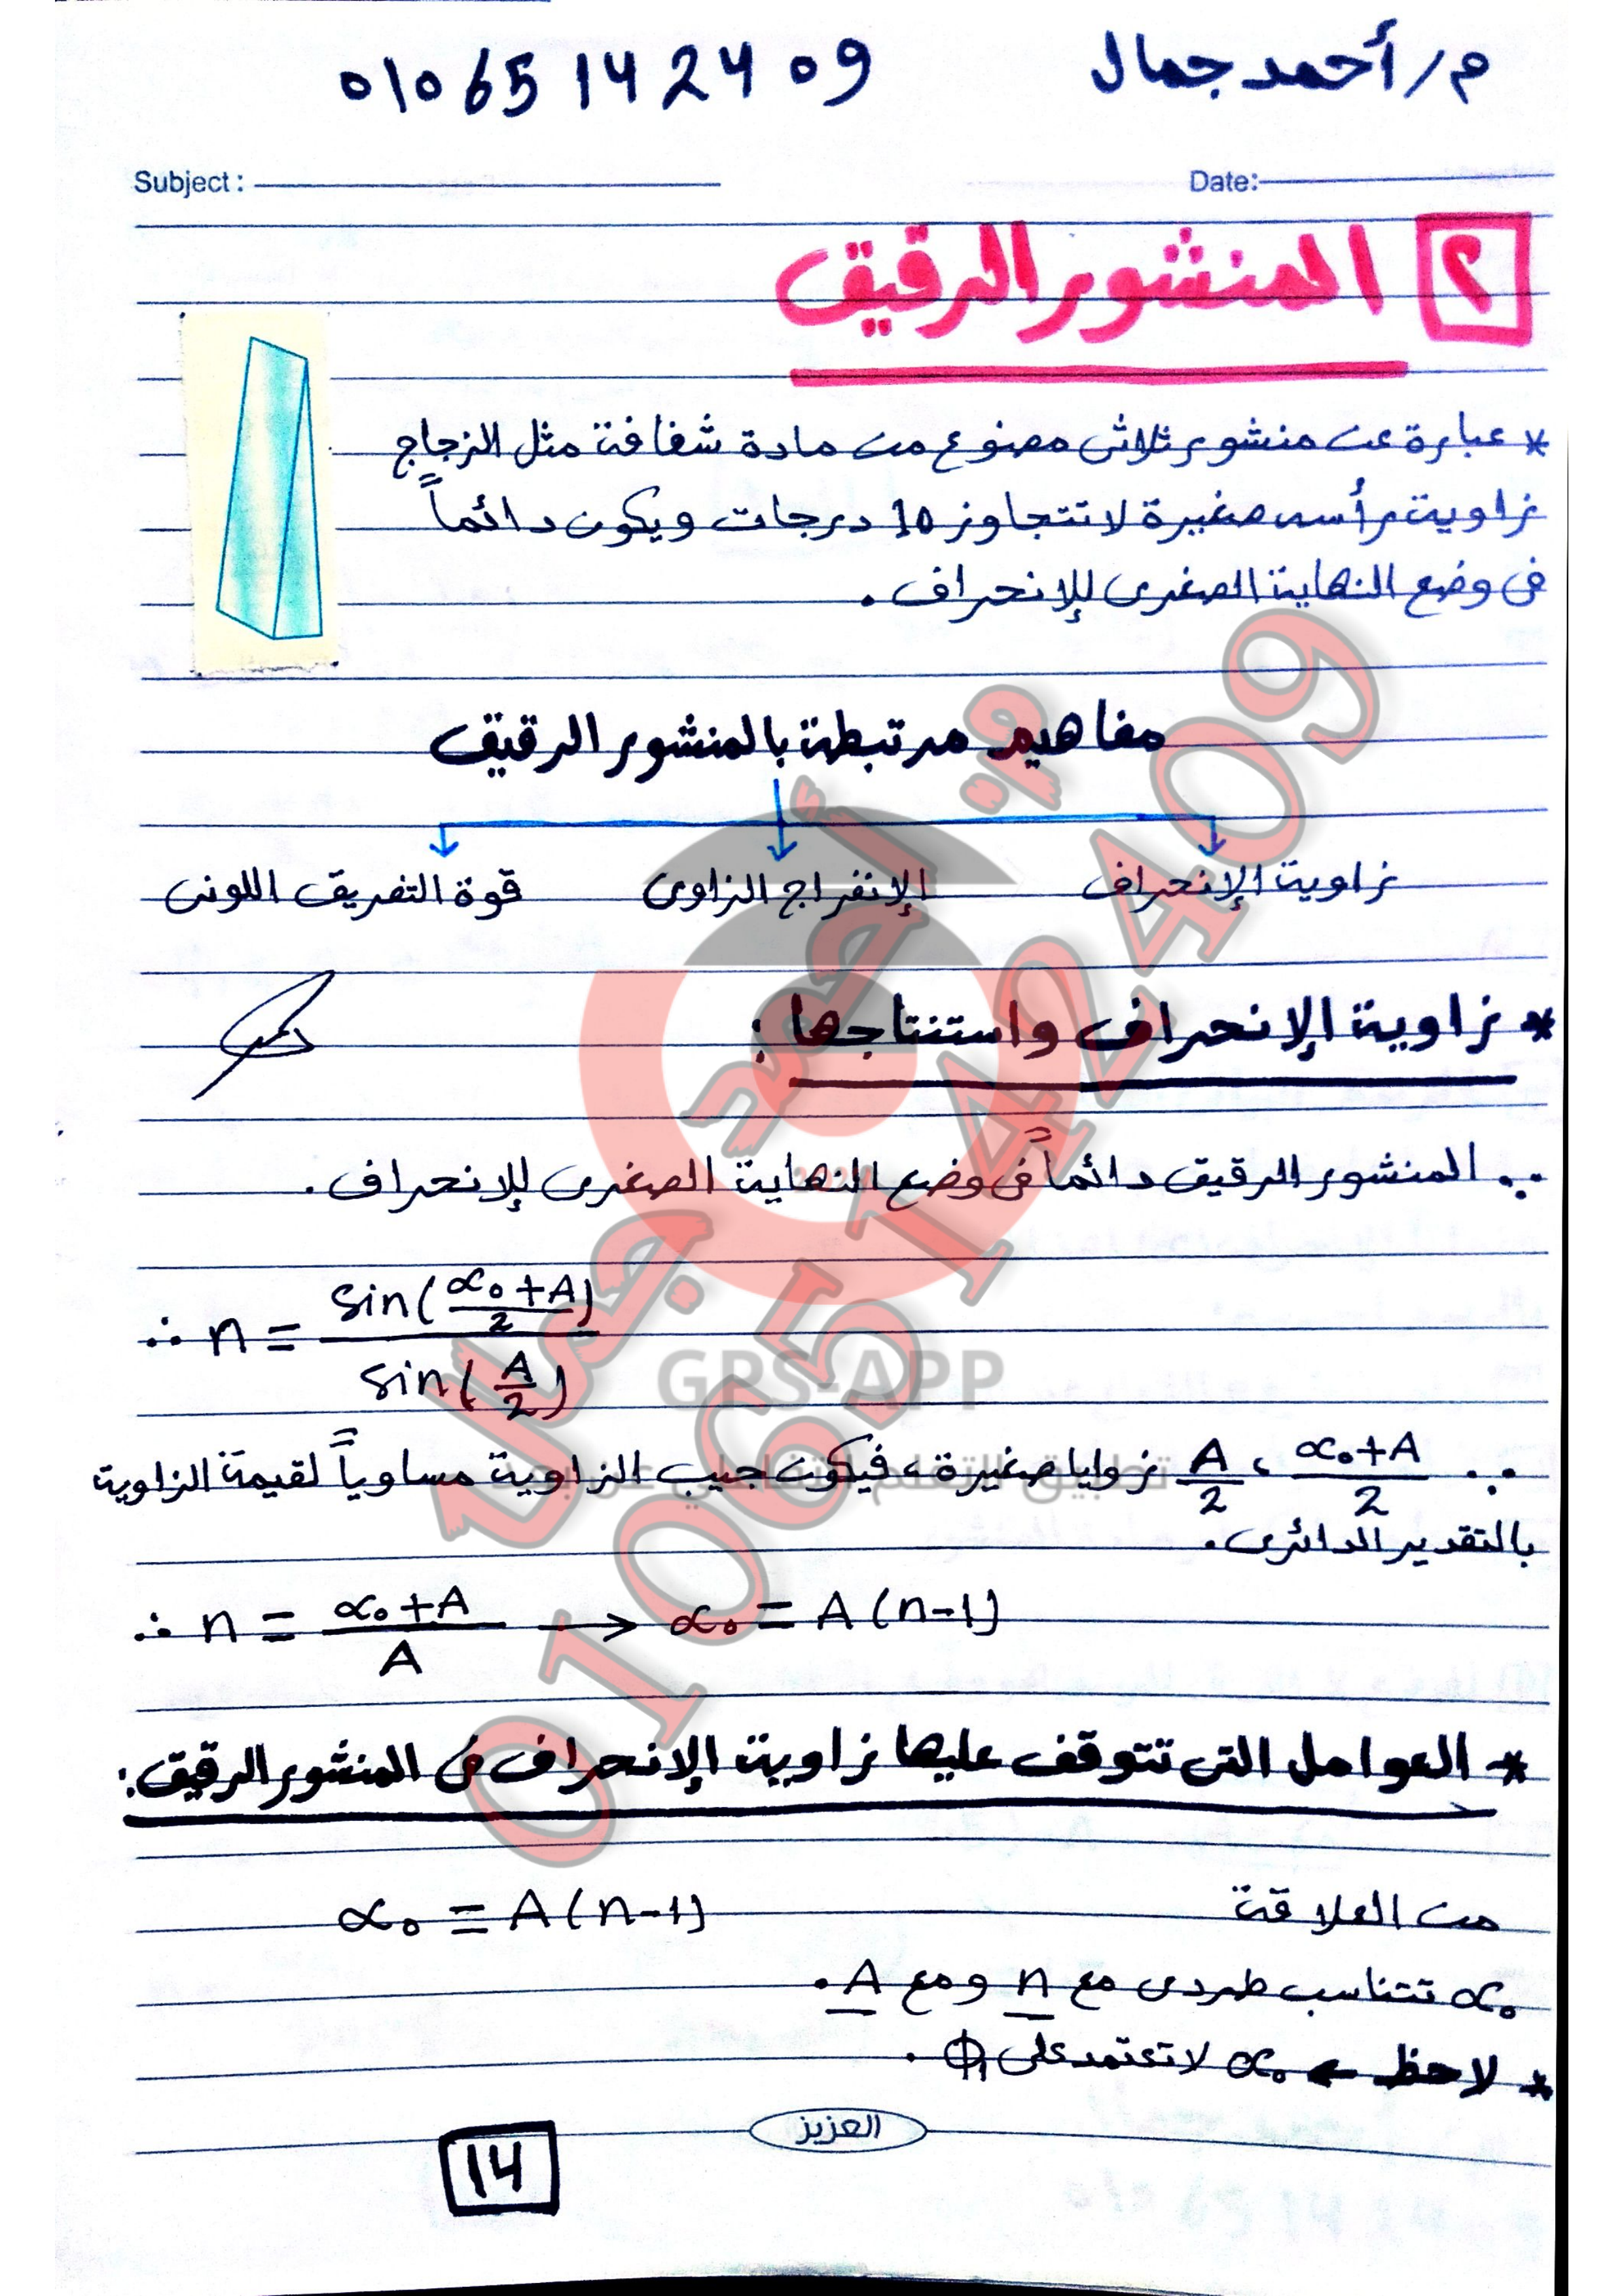 م/أحمد جمال 01065142409
Subject : Date:
٢ المنشور الرقيق
* عبارة عن منشور ثلاثى مصنوع من مادة شفافة مثل الزجاج
زاوية رأسه صغيرة لا تتجاوز 10 درجات ويكون دائماً
فى وضع النهاية الصغرى للإنحراف .
مفاهيم مرتبطة بالمنشور الرقيق
زاوية الإنحراف الإنفراج الزاوى قوة التفريق اللونى
* زاوية الإنحراف واستنتاجها :
∵ المنشور الرقيق دائماً فى وضع النهاية الصغرى للإنحراف .
∴ n = sin((α₀+A)/2) / sin(A/2)
∵ (α₀+A)/2 ، A/2 زوايا صغيرة ، فيكون جيب الزاوية مساوياً لقيمة الزاوية
بالتقدير الدائرى .
∴ n = (α₀+A)/A → α₀ = A(n-1)
* العوامل التى تتوقف عليها زاوية الإنحراف فى المنشور الرقيق :
من العلاقة α₀ = A(n-1)
α₀ تتناسب طردى مع n ومع A .
* لاحظ ← α₀ لا تعتمد على ϕ₁ .
العزيز
14
م. أحمد جمال
01065142409
GPS-APP